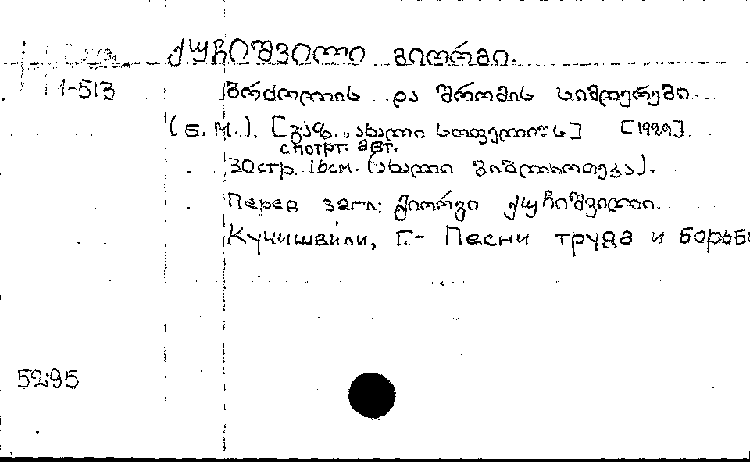 ქუჩიშვილი გიორგი.
1-513
ბრძოლის და შრომის სიმღერები
(Б. М.). [გაზ. „ახალი სოფელი"ს] [1929].
с портр. авт.
30 стр. 16 см. (ახალი ბიბლიოთეკა).
Перед загл: გიორგი ქუჩიშვილი.
Кучишвили, Г.- Песни труда и борьбы
5295